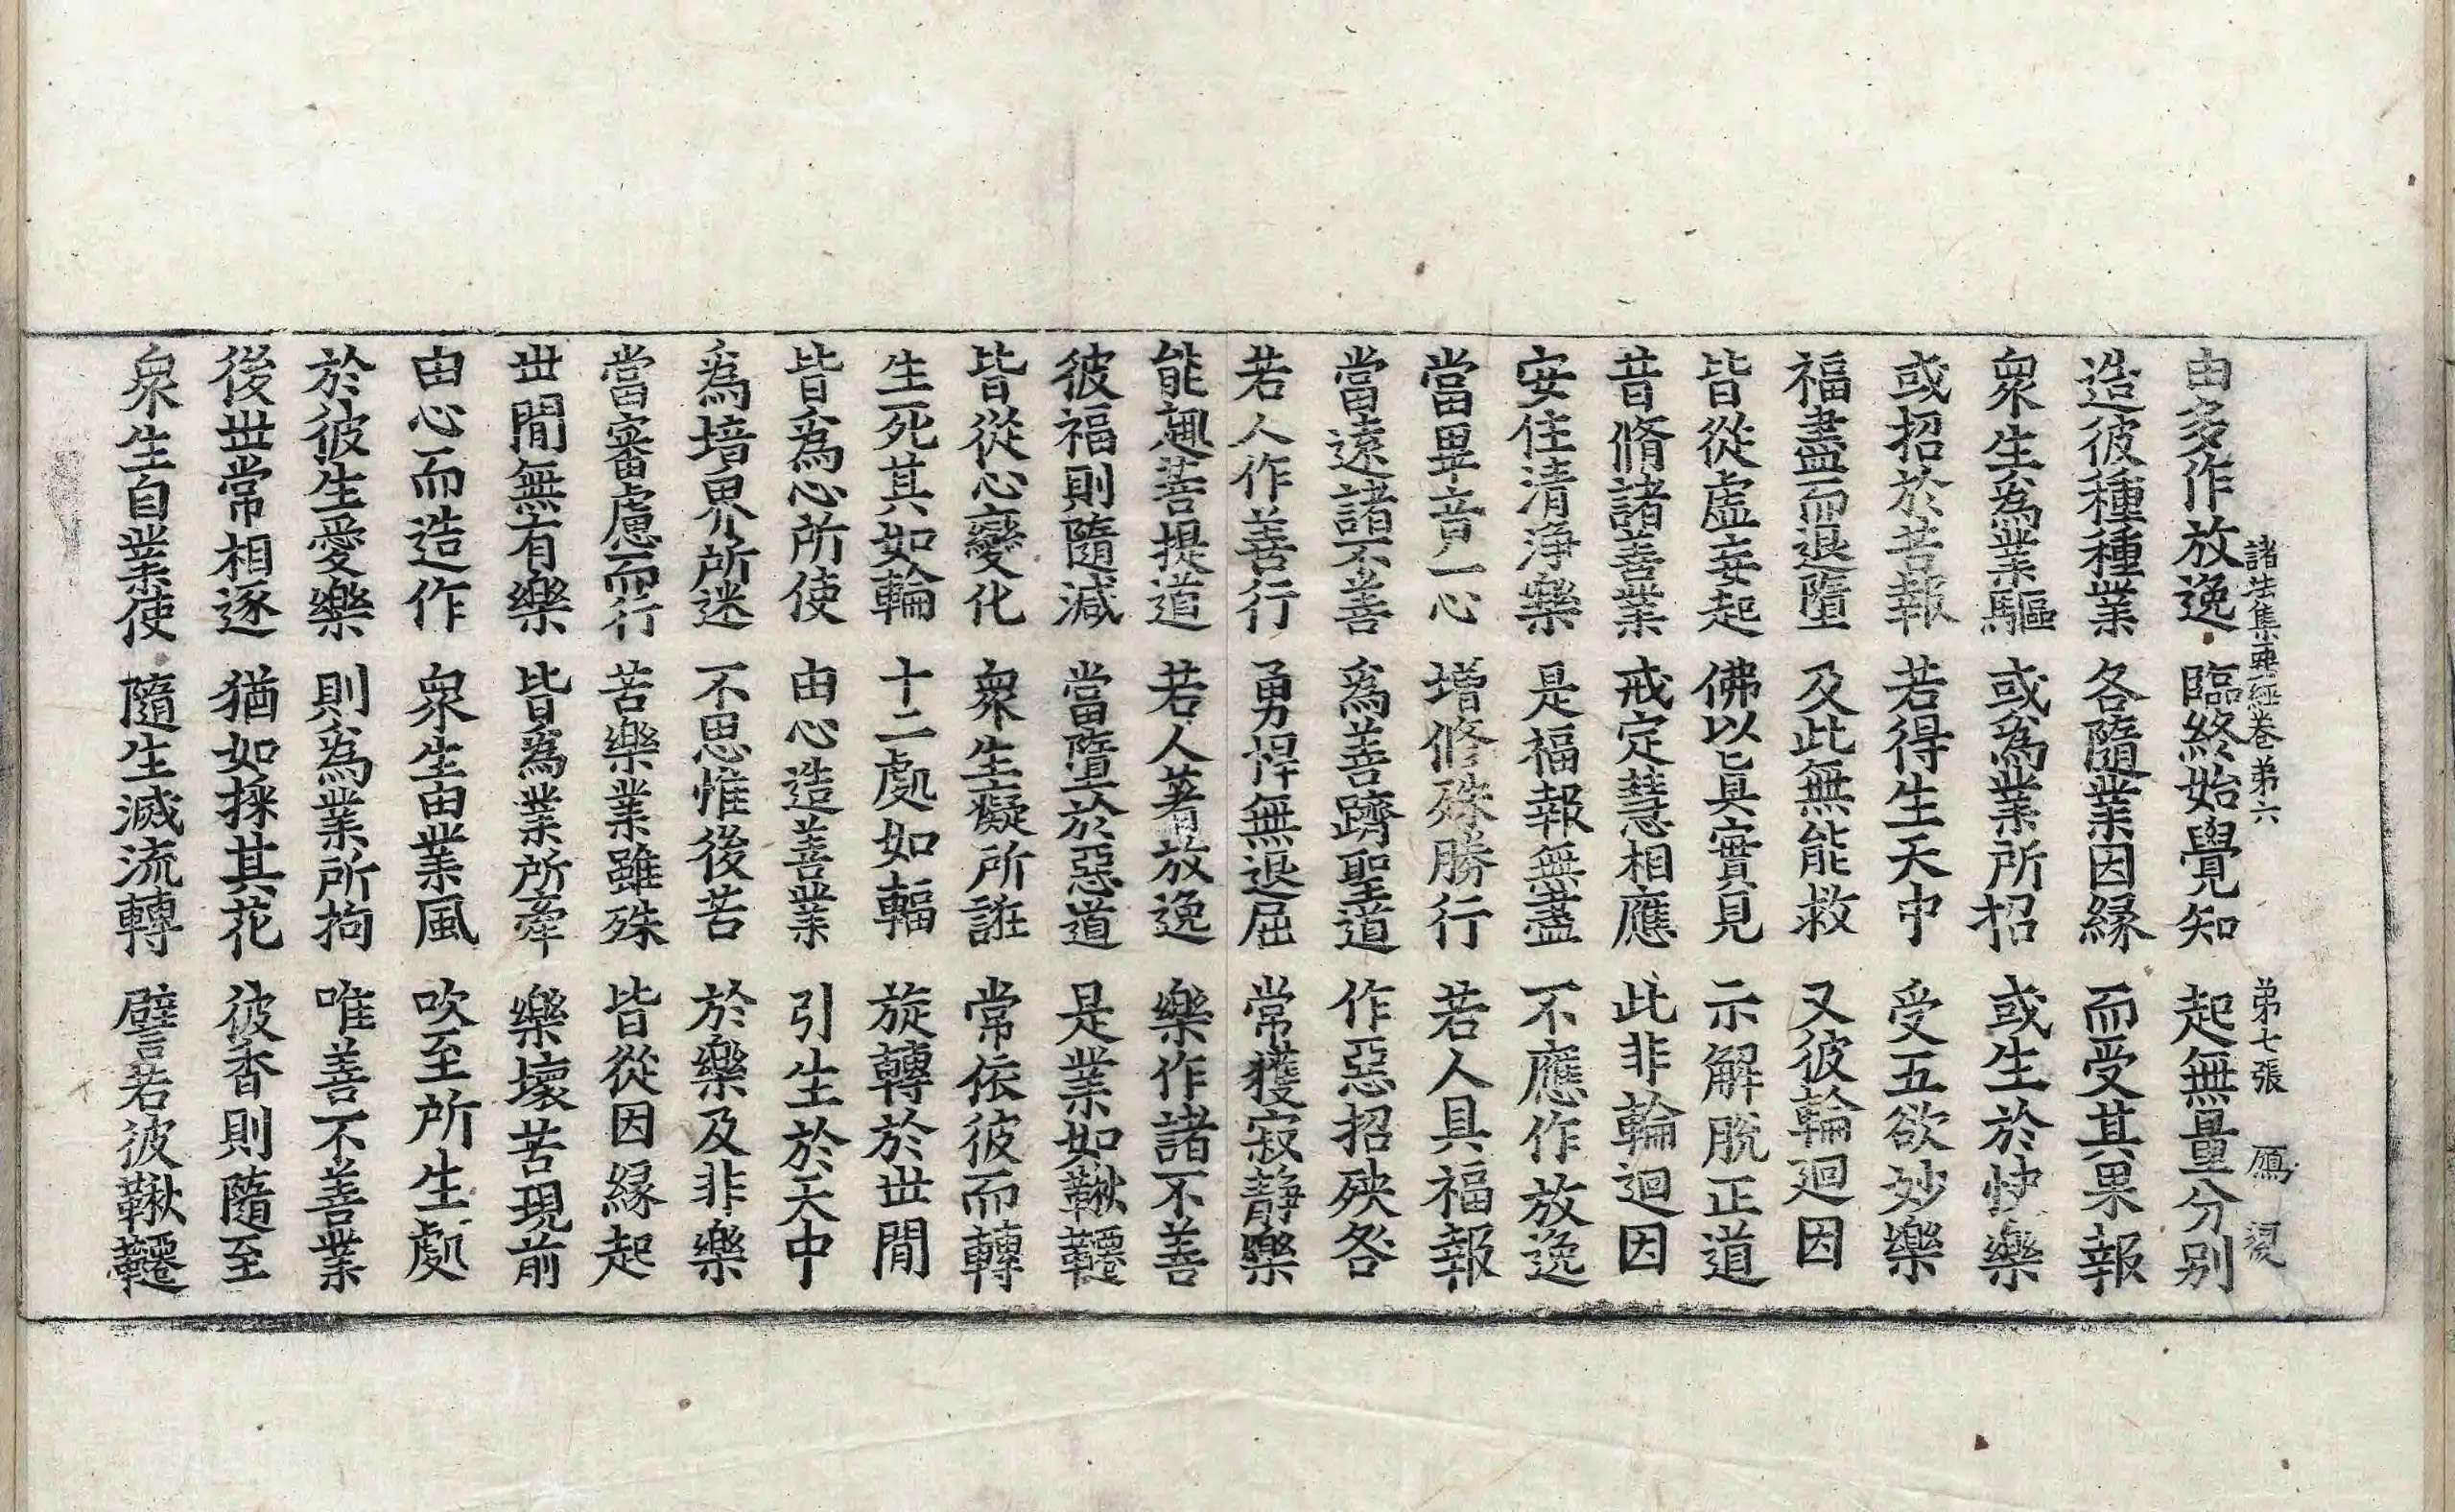 諸法集要經卷弟六　弟七張　鴈　淂
由多作放逸　臨終始覺知　起無量分别
造彼種種業　各隨業因緣　而受其果報
衆生為業驅　或為業所招　或生於快樂
或招於苦報　若得生天中　受五欲妙樂
福盡而退墮　及此無能救　又彼輪迴因
皆從虛妄起　佛以具實見　示解脫正道
昔脩諸善業　戒定慧相應　此非輪迴因
安住清淨樂　是福報無盡　不應作放逸
當專一心　增修殊勝行　若人具福報
當遠諸不善　為善躋聖道　作惡招殃咎
若人作善行　勇悍無退屈　常獲寂静樂
能趣菩提道　若人著放逸　樂作諸不善
彼福則隨減　當墮於惡道　是業如鞦韆
皆從心變化　衆生癡所誑　常依彼而轉
生死其如輪　十二處如輻　旋轉於丗間
皆為心所使　由心造善業　引生於天中
為境界所迷　不思惟後苦　於樂及非樂
當審慮而行　苦樂業雖殊　皆從因緣起
丗間無有樂　皆為業所牽　樂壞苦現前
由心而造作　衆生由業風　吹至所生處
於彼生愛樂　則為業所拘　唯善不善業
後丗常相逐　猶如採其花　彼香則隨至
衆生自業使　隨生滅流轉　譬若彼鞦韆